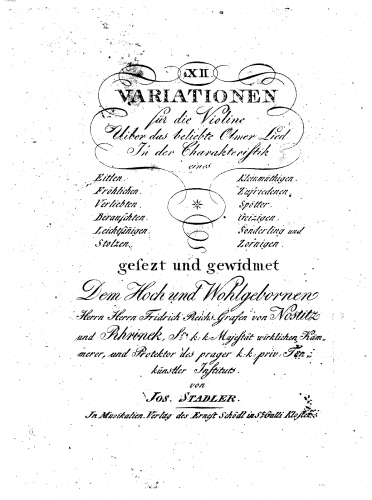 XII
VARIATIONEN
für die Violine
Uiber das beliebte Olmer Lied
In der Charakteristik
eines
Eitlen. Kleinmüthigen.
Fröhlichen. Zufriedenen.
Verliebten. Spötter.
Berauschten. Geizigen.
Leichtsinigen. Sonderling und
Stolzen. Zornigen.
gesezt und gewidmet
Dem Hoch und Wohlgebornen
Herrn Herrn Fridrich Reichs Grafen von Nostitz
und Rhrinek, Sr. k. k. Majestät wirklichen Kam=
merer, und Protektor des prager k. k. priv. Ton=
künstler Instituts.
von
JOS. STADLER.
In Musikalien Verlag des Ernst Schödl in St. Galli Kloster